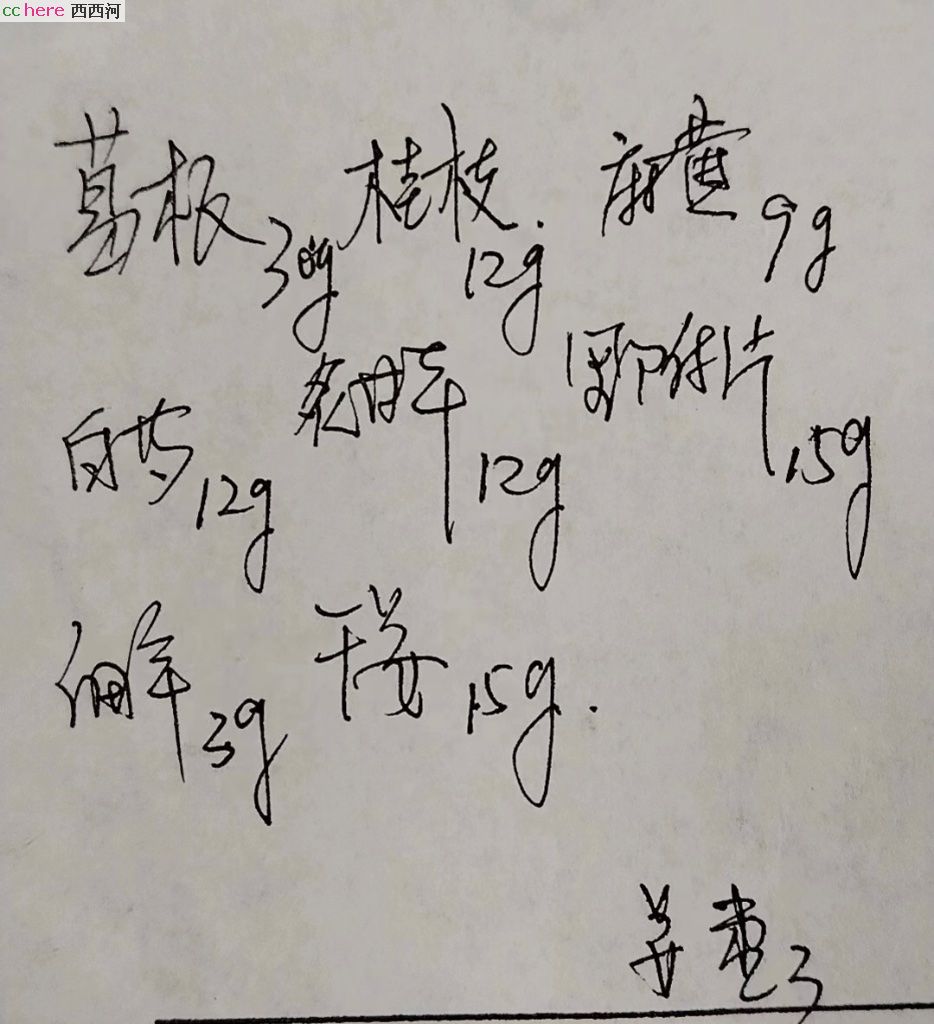 cchere 西西河
葛根30g 桂枝12g 麻黄9g
白芍12g 炙甘草12g 黑附片15g
细辛3g 干姜15g.
姜枣3